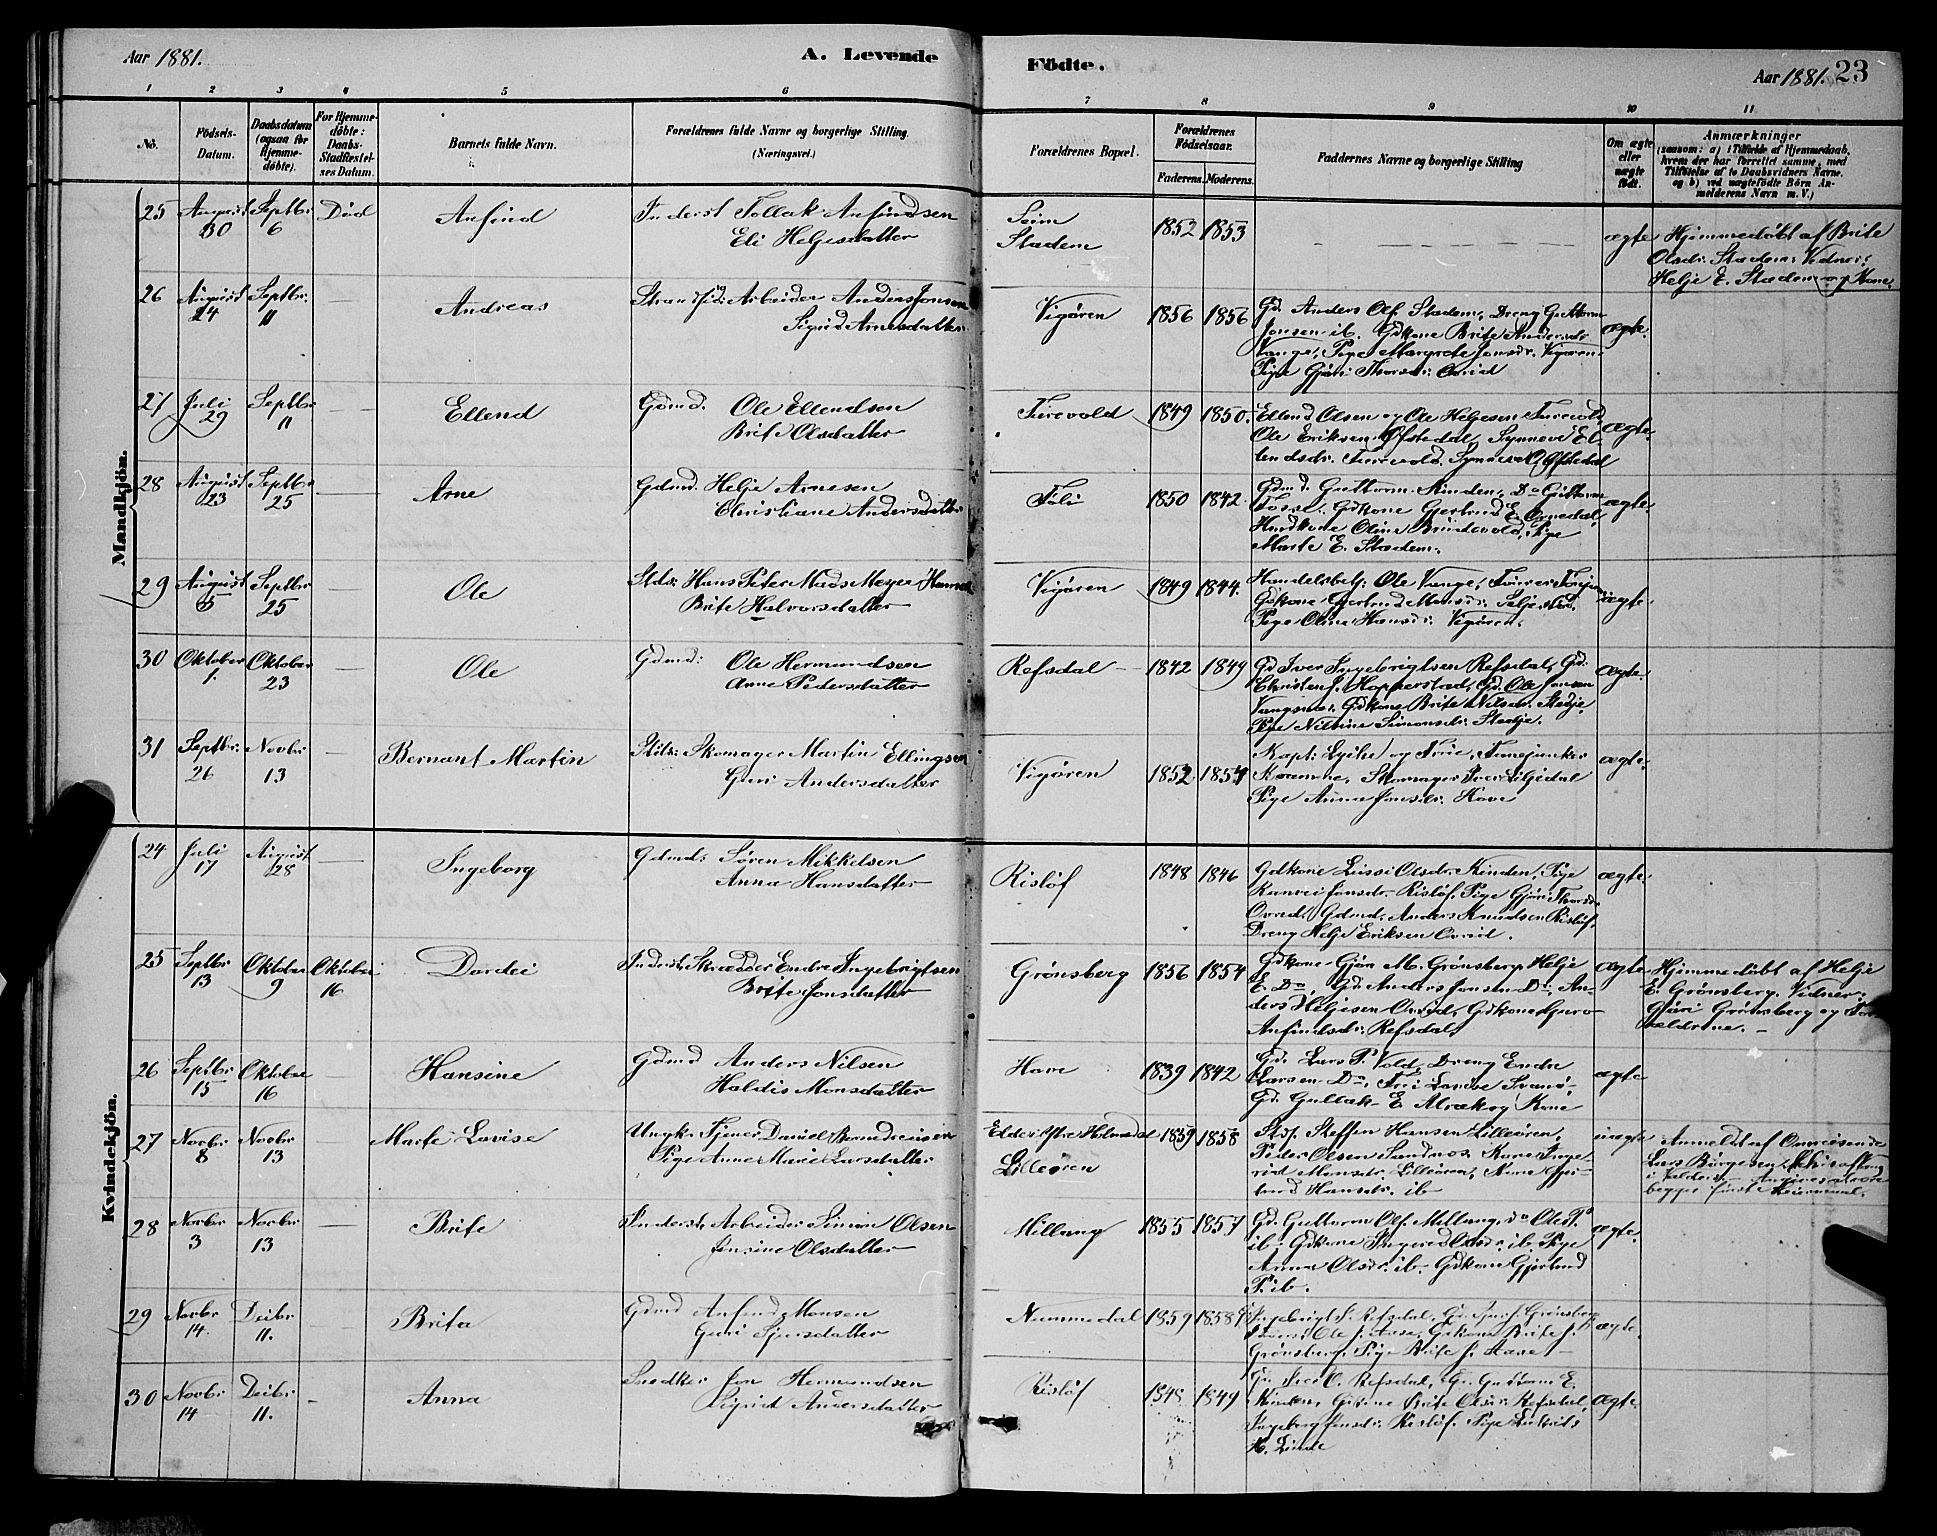 Aar 1881.
A. Levende
Födte.
Aar 1881. 23
1 2 3 4 5 6 7 8 9 10 11
No.
Födsels-Datum.
Daabsdatum (ogsaa for Hjemme-döbte).
For Hjemme-döbte: Daabs-Stadfæstel-ses Datum.
Barnets fulde Navn.
Forældrenes fulde Navne og borgerlige Stilling. (Næringsvei.)
Forældrenes Bopæl.
Forældrenes Födselsaar.
Faderens. Moderens.
Faddernes Navne og borgerlige Stilling
Om ægte eller uægte födt.
Anmærkninger
(saasom: a) i Tilfælde af Hjemmedaab, hvem der har forrettet samme, med Tilföielse af to Daabsvidners Navne. og b) ved uægtefödte Börn An-melderens Navn m. V.)
Mandkjön.
25 August 30 Septbr 6 Död Anfind Inderst Tollak Anfindsen
Eli Helgesdatter
Seim
Stadem
1852 1853 ægte Hjemmedöbt af Brite
Olsdr. Stadem. Vidner:
Helje E. Stadem og Kone.
26 August 24 Septbr. 11 Andreas Strandsid. Arbeider Anders Jonsen
Sigrid Arnesdatter
Vigören 1856 1856
Gd. Anders Ols. Stadem, Dreng Guttorm
Jonsen ib. Gdkone Brite Andersdr.
Vange, Pige Margrete Jonsdr. Vigören.
Pige Gjöri Thorsdr. Orvid
ægte.
27 Juli 29 Septbr 11 Ellend Gdmd. Ole Ellendsen
Brite Olsdatter
Turevold 1849 1850.
Ellend Olsen og Ole Helgesen Turevold
Ole Eriksen Ofstedal, Synneve El-
lendsdr. Turevold. Synneve O. Ofstedal
ægte.
28 August 23 Septbr 25 Arne Gdmd. Helje Arnesen
Christiane Andersdatter
Föli 1850 1842.
Gdmd. Guttorm Kinden, Do Guttorm
Tosse. Gdkone Gertrud E. Ornedal,
Huskone Oline Brudevold, Pige
Marte E. Stadem.
ægte.
29 August 5 Septbr 25 Ole Stds: Hans Peter Mads Meyer Hansen
Brite Halvorsdatter
Vigören 1849 1844.
Handelsbetj. Ole Vange,
Gdkone Gjertrud Monsdr.
Pige Oline Hansdr. Vigören.
ægte.
30 Oktober 1. Oktober 23 Ole Gdmd: Ole Hermundsen
Anne Pedersdatter
Refsdal 1842 1849
Gd Iver Ingebrigtsen Refsdal, Gd.
Christen J. Hopperstad, Gd. Ole Jonsen
Vangsnes. Gdkone Brite Nilsdr. Stedje.
Pige Nilsine Simonsdr. Stedje.
ægte.
31 Septbr. 26 Novbr 13 Bernant Martin Stds: Skomager Martin Ellingsen
Guri Andersdatter
Vigören 1852 1854
Kapt: Lythe og Frue, Fanejunker
Skomager Iver Liljedal
Pige Anna Jonsdr. Hove
ægte.
Kvindekjön.
24 Juli 17 August 28 Ingeborg Gdmd: Sören Mikkelsen
Anna Hansdatter
Rislöf 1848 1846
Gdkone Lussi Olsdr. Kinden, Pige
Kanvei Jonsdr. Rislöf, Pige Gjöri Thorsdr.
Orvid, Gdmd. Anders Knudsen Rislöf.
Dreng Helje Eriksen Orvid.
ægte.
25 Septbr 13 Oktober 9 Oktober 16 Dordei Inderst, Skrædder Endre Ingebrigtsen
Brite Jonsdatter
Grönsberg 1856 1854
Gdkone Gjöri M. Grönsberg, Helje
E. Do, Gd. Anders Jonsen Do, An-
ders Helgesen Orvid, Gdkone Guro
Anfindsdr. Refsdal
ægte
Hjemmedöbt af Helje
E. Grönsberg. Vidner:
Gjöri Grönsberg og For-
ældrene.
26 Septbr 15 Oktober 16 Hansine Gdmd Anders Nilsen
Haldis Monsdatter
Hove 1839 1842
Gd. Lars P. Vold, Dreng Endre
Larsen Do, Frøi Lovise Svanö,
Gd. Gullak E. Alræk og Kone
ægte
27 Novbr 8 Novbr 13 Marte Lovise Ungk. Tjener Daniel Berndreiusen
Pige Anne Marie Larsdatter
Ytre Holmedal
Lilleören
1859 1858
Stds. Steffen Hansen Lilleören,
Peder Olsen Sandnes, Kone Inge-
rid Monsdr. Lilleören, Kone Gjer-
trud Hansdr. ib
uægte
Anmeldt af Omreisende
Lars Börgesen
28 Novbr 3 Novbr 13 Brite Inderst, Arbeider Simon Olsen
Jensine Olsdatter
Millang 1855 1857
Gd. Guttorm Ols. Millang, do Ole P.
ib. Gdkone Ingerid Olsdr. ib. Pige
Anna Olsdr. ib. Gdkone Gjertrud
P. ib.
ægte.
29 Novbr 14. Decbr 11. Brita Gdmd Anfind Monsen
Guri Sjursdatter
Nummedal 1859 1858
Ingebrigt S. Refsdal, Gd. Sjur J. Grönsberg
Ole J. Aase, Gdkone Brite J.
Grönsberg, Pige Brite J. Aase
ægte.
30 Novbr 14 Decbr 11. Anna Snedker Jon Hermundsen
Sigrid Andersdatter
Rislöf 1848 1849
Gd. Iver O. Refsdal, Gd. Guttorm E.
Kinden, Gdkone Brite Olsdr. Refsdal,
Ingeborg Jonsdr. Rislöf. Pige
H. Linde
ægte